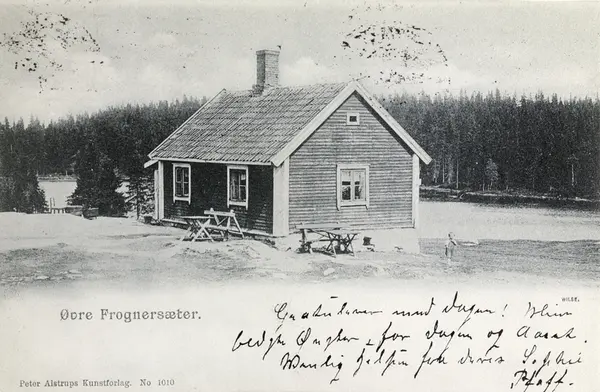 Øvre Frognersæter.
Gratulerer med dagen!
bedste Ønsker for dagen og
Venlig hilsen fra deres Sophie
Pfaff.
Peter Alstrups Kunstforlag. No 1010